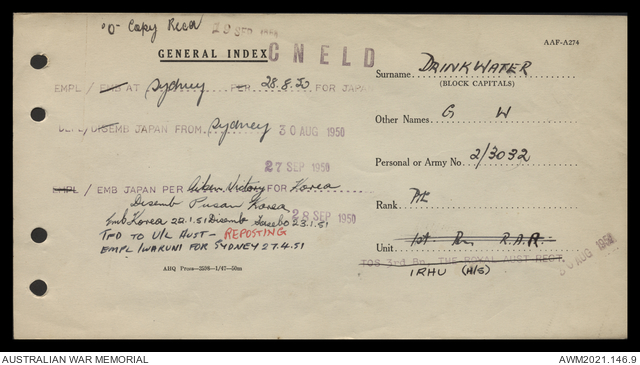 "O" Copy Recd 29 SEP 1950
GENERAL INDEX CNELD
AAF-A274
Surname DRINKWATER
(BLOCK CAPITALS)
EMPL / EMB AT Sydney PER 28.8.50 FOR JAPAN
Other Names G W
DEPL/DISEMB JAPAN FROM Sydney 30 AUG 1950
Personal or Army No. 2/3032
27 SEP 1950
EMPL / EMB JAPAN PER Aiken Victory FOR Korea
Rank Pte
Disemb Pusan Korea 28 SEP 1950
Emb Korea 22.1.51 Disemb Sasebo 23.1.51
TPD TO U/L AUST - REPOSTING
EMPL/IWAKUNI FOR SYDNEY 27.4.51
Unit 1st Bn R.A.R.
TOS 3rd Bn. THE ROYAL AUST REGT 30 AUG 1950
IRHU
AHQ Press—3598—1/47—50m
AUSTRALIAN WAR MEMORIAL
AWM2021.146.9